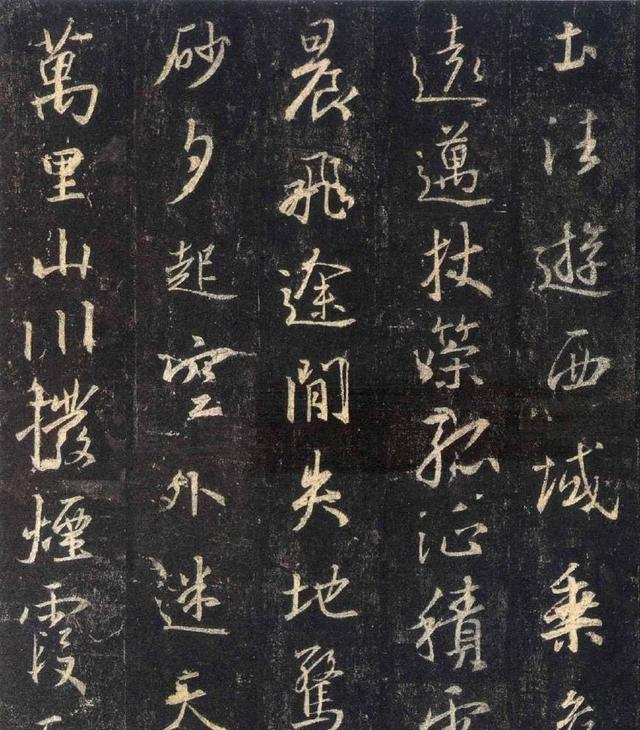 土往遊西域乘危
遠邁杖策孤征積雪
晨飛途間失地驚
砂夕起空外迷天
萬里山川撥煙霞